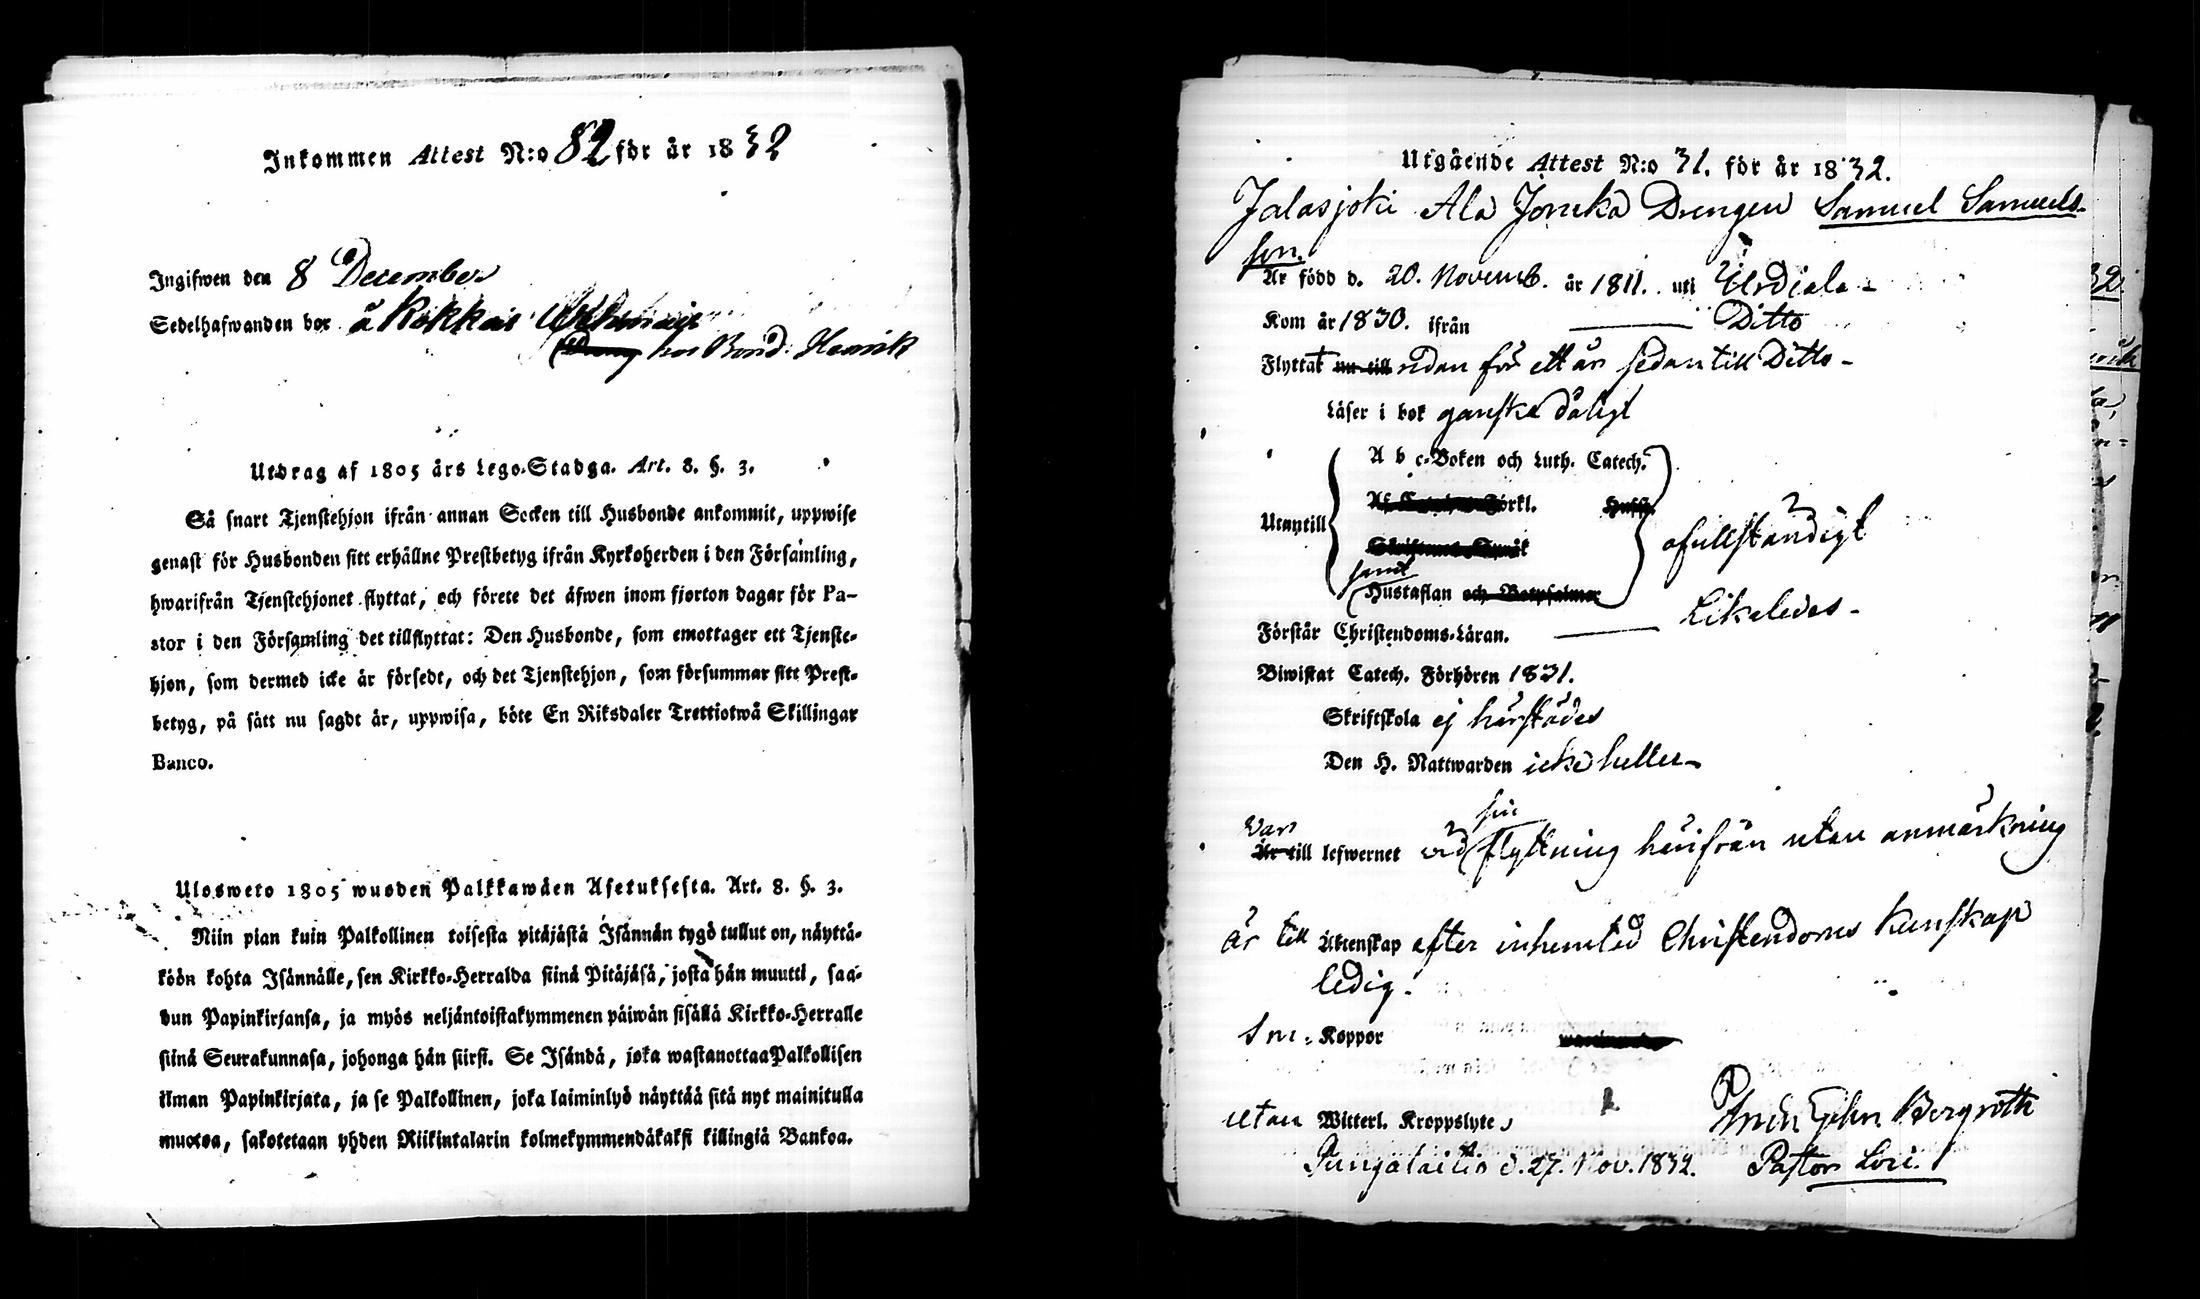 Inkommen Attest N:o 82 för år 1832
Ingifwen den 8 December
Sedelhafwanden bor å Kokkais
hos Bond. Henrik
Utdrag af 1805 års Lego-Stadga. Art. 8. §. 3.
Så snart Tjenstehjon ifrån annan Socken till Husbonde ankommit, uppwise
genast för Husbonden sitt erhållne Prestbetyg ifrån Kyrkoherden i den Församling,
hwarifrån Tjenstehjonet flyttat, och förete det äfwen inom fjorton dagar för Pa-
stor i den Församling det tillflyttat: Den Husbonde, som emottager ett Tjenste-
hjon, som dermed icke är försedt, och det Tjenstehjon, som försummar sitt Prest-
betyg, på sätt nu sagdt är, uppwisa, böte En Riksdaler Trettiotwå Skillingar
Banco.
Ulosweto 1805 wuoden Palkkawäen Asetuksesta. Art. 8. §. 3.
Niin pian kuin Palkollinen toisesta pitäjästä Isännän tygö tullut on, näyttä-
köön kohta Isännälle, sen Kirkko-Herralda siinä Pitäjäsä, josta hän muutti, saa-
dun Papinkirjansa, ja myös neljäntoistakymmenen päiwän sisällä Kirkko-Herralle
siinä Seurakunnasa, johonga hän siirsi. Se Isändä, joka wastanottaa Palkollisen
ilman Papinkirjata, ja se Palkollinen, joka laiminlyö näyttää sitä nyt mainitulla
muotoa, sakotetaan yhden Riikintalarin kolmekymmendäkaksi killingiä Bankoa.
Utgående Attest N:o 31. för år 1832.
Jalasjoki Ala Drengen Samuel Samuels-
son.
Är född d. 20. Novemb. år 1811. uti Urdiala -
Kom år 1830. ifrån Ditto
Flyttat nu till redan för ett år sedan till Ditto -
Läser i bok ganska dåligt
A b c-Boken och Luth. Catech.
Förkl. Hufst.
Utantill ofullständigt
samt
Hustaflan och Botpsalmer
Förstår Christendoms-Läran. Likaledes -
Biwistat Catech. Förhören 1831.
Skriftskola ej härstädes
Den H. Nattwarden icke heller -
Var sin
Är till lefwernet vid flyttning härifrån utan anmärkning
är till Äktenskap efter inhemtad Christendoms kunskap
ledig.
Koppor
utan Witterl. Kroppslyte
Bergroth
d. 27. Nov. 1832. Pastor Loci.